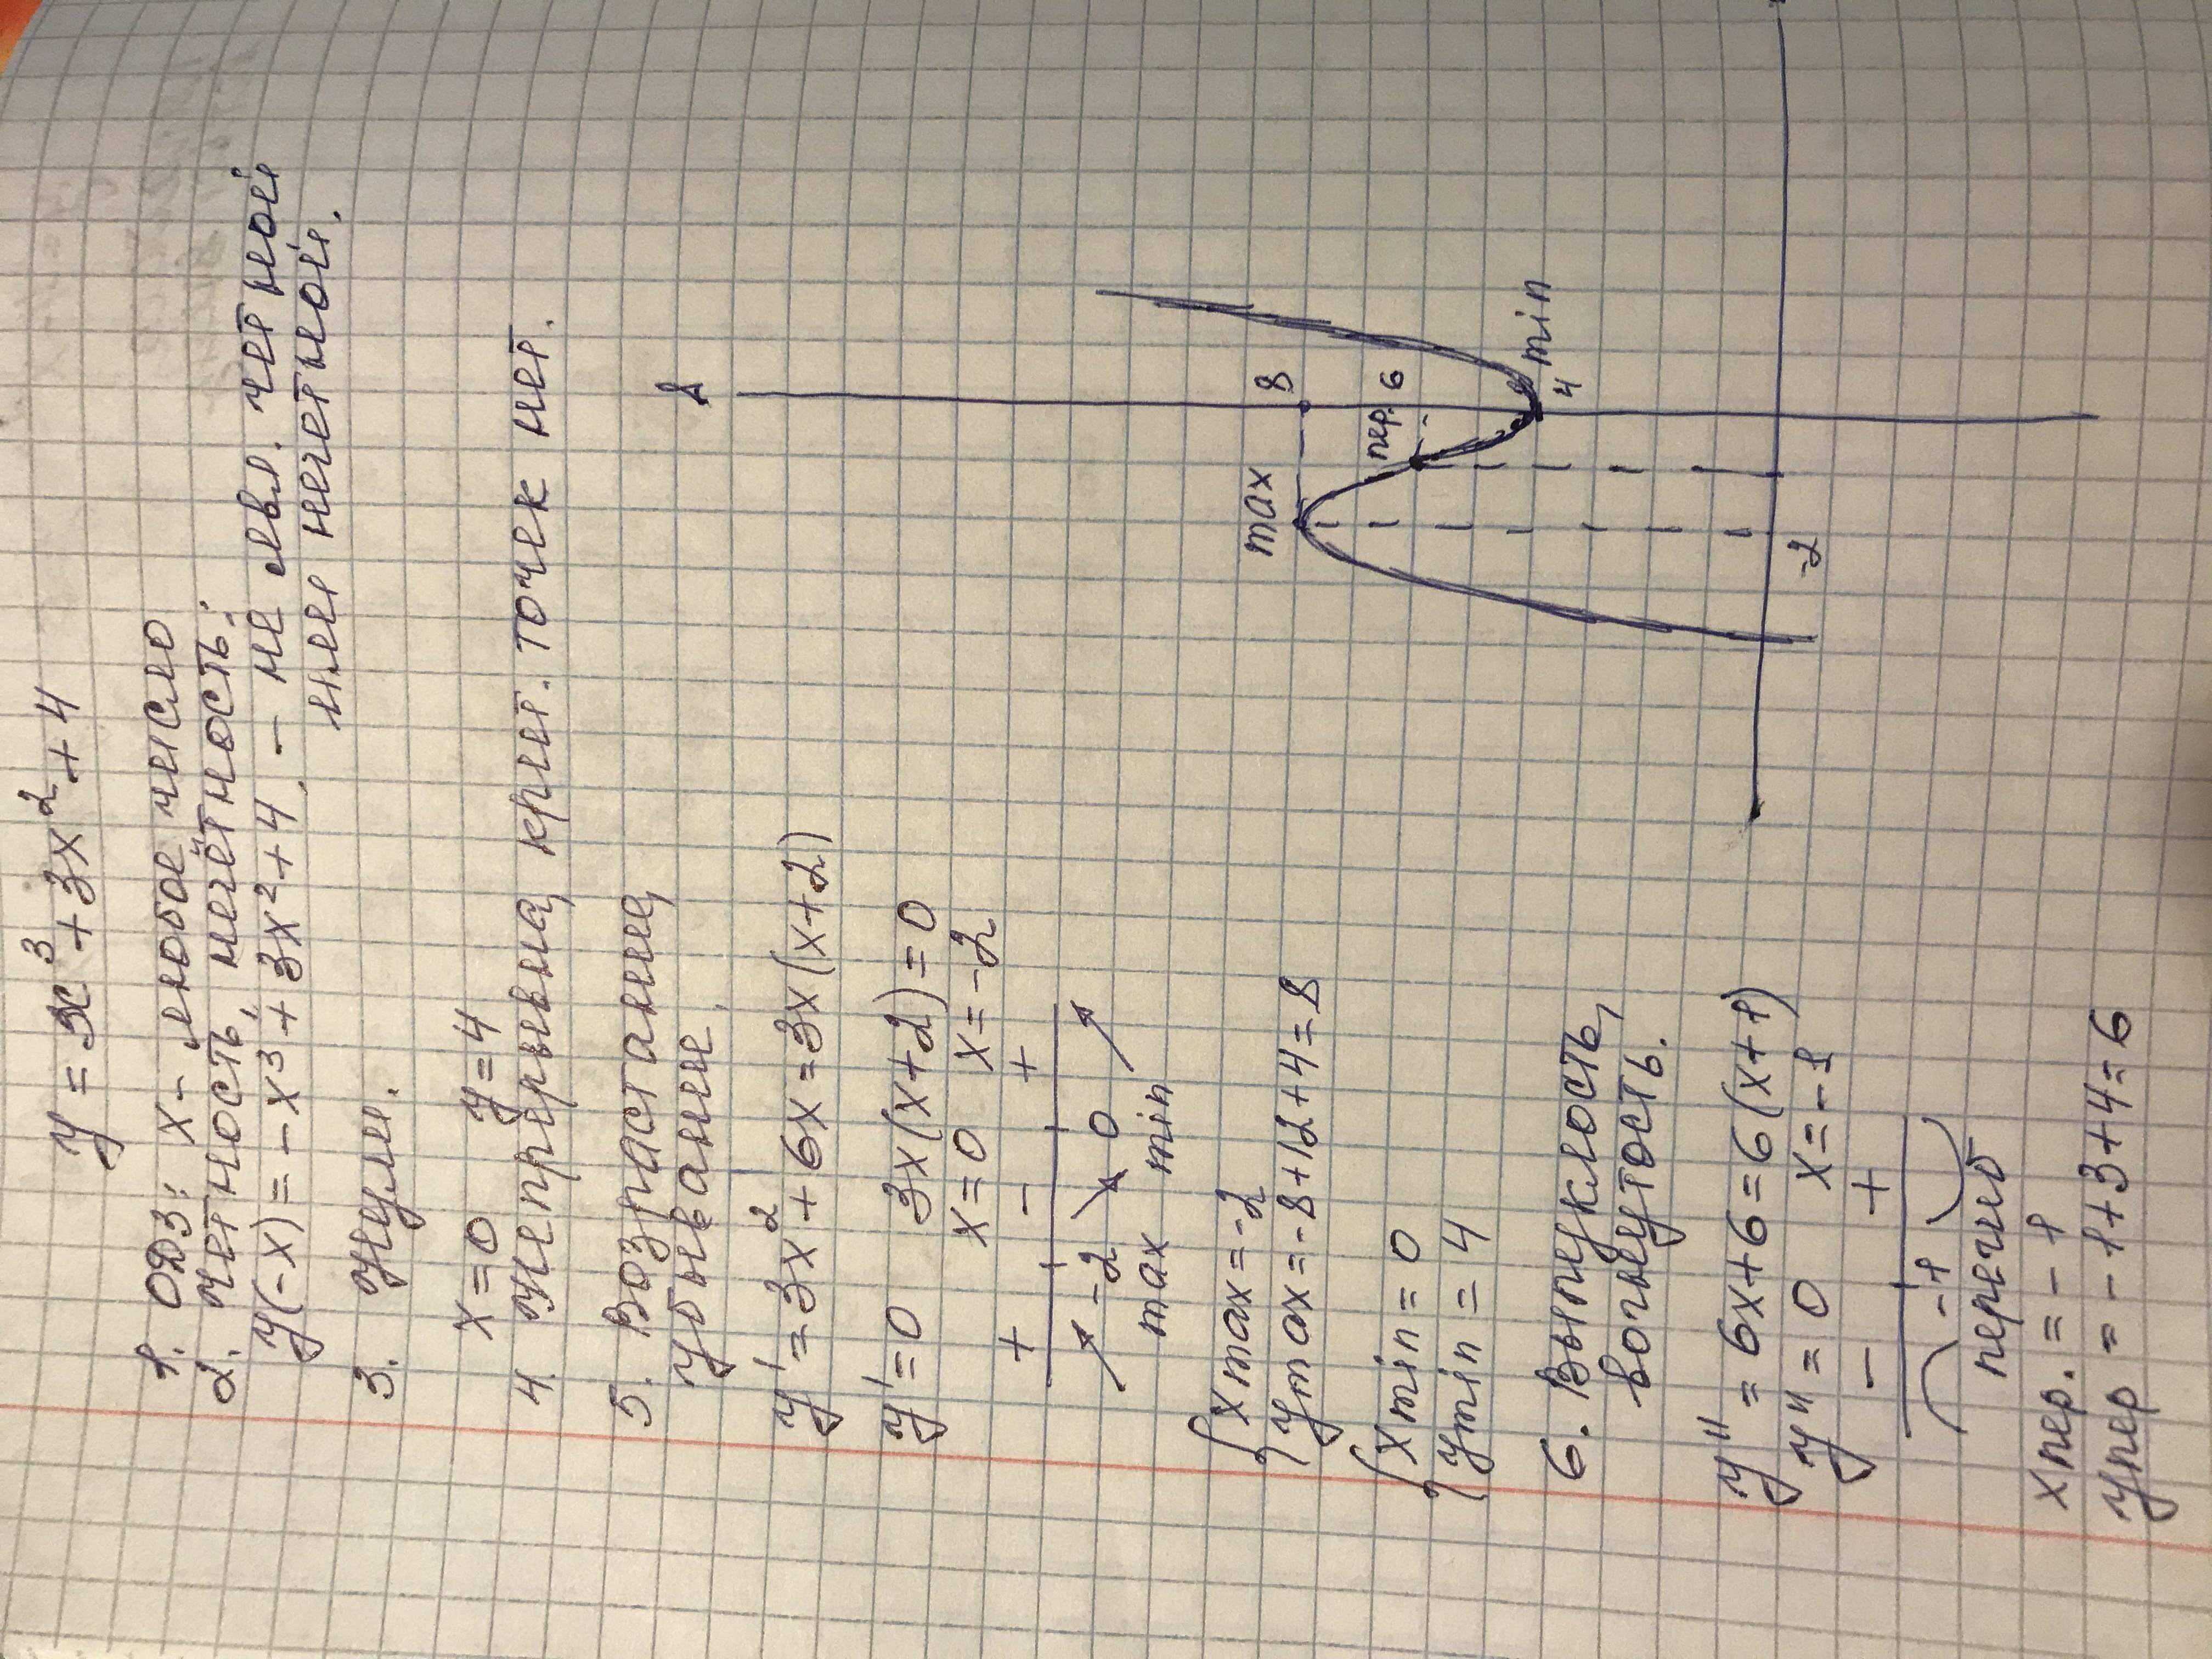 y = x³ + 3x² + 4
1. ОДЗ: x - любое число
2. четность, нечётность:
y(-x) = -x³ + 3x² + 4 - не явл. четной
или нечетной.
3. Нули.
x = 0 y = 4
4. Непрерывна, крит. точек нет.
5. Возрастание,
убывание.
y' = 3x² + 6x = 3x(x+2)
y' = 0 3x(x+2) = 0
x = 0 x = -2
+ - +
-2 0
max min
xmax = -2
ymax = -8+12+4 = 8
xmin = 0
ymin = 4
6. Выпуклость,
вогнутость.
y'' = 6x+6 = 6(x+1)
y'' = 0 x = -1
- +
-1
перегиб
xпер. = -1
yпер = -1+3+4 = 6
max 8
пер. 6
4 min
-2